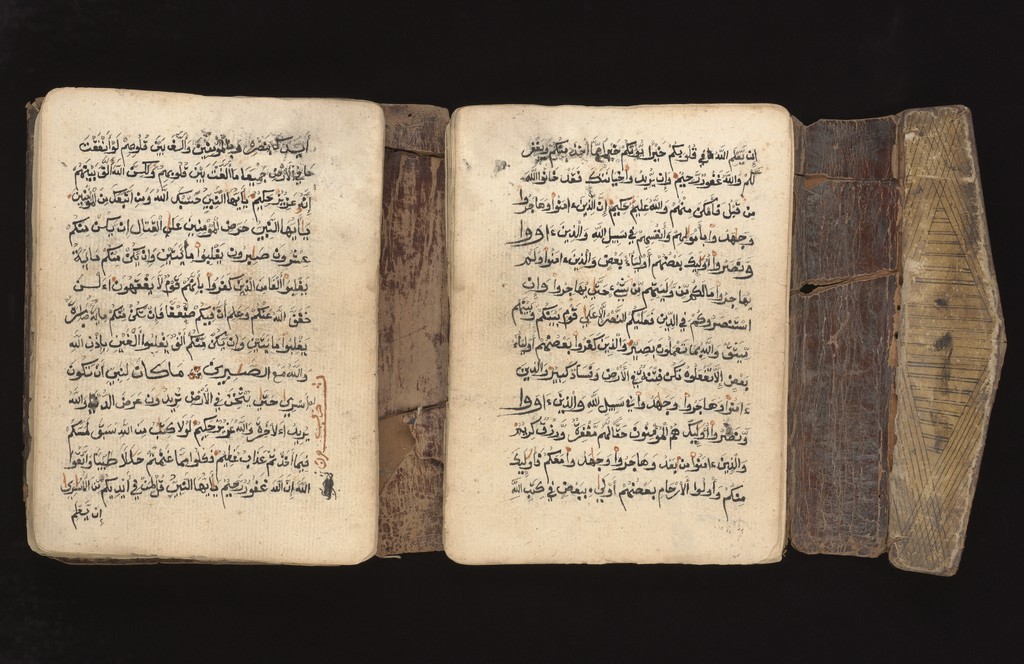 أيدك بنصره وبالمؤمنين وألف بين قلوبهم لو أنفقت
ما في الأرض جميعا ما ألفت بين قلوبهم ولكن الله ألف بينهم
إنه عزيز حكيم يأيها النبي حسبك الله ومن اتبعك من المؤمنين
يأيها النبي حرض المؤمنين على القتال إن يكن منكم
عشرون صبرون يغلبوا مائتين وإن تكن منكم مائة
يغلبوا ألفا من الذين كفروا بأنهم قوم لا يفقهون الن
خفف الله عنكم وعلم أن فيكم ضعفا فإن تكن منكم مائة صابرة
يغلبوا مائتين وإن يكن منكم ألف يغلبوا ألفين بإذن الله
والله مع الصبرين ما كان لنبي أن تكون
له أسرى حتى يثخن في الأرض تريدون عرض الدنيا والله
يريد الاخرة والله عزيز حكيم لولا كتب من الله سبق لمسكم
فيما أخذتم عذاب عظيم فكلوا مما غنمتم حللا طيبا واتقوا
الله إن الله غفور رحيم يأيها النبي قل لمن في أيديكم من الأسرى
إن يعلم
إن يعلم الله في قلوبكم خيرا يؤتكم خيرا مما أخذ منكم ويغفر
لكم والله غفور رحيم وإن يريدوا خيانتك فقد خانوا الله
من قبل فأمكن منهم والله عليم حكيم إن الذين ءامنوا وهاجروا
وجهدوا بأمولهم وأنفسهم في سبيل الله والذين ءاووا
ونصروا أولئك بعضهم أولياء بعض والذين ءامنوا ولم
يهاجروا ما لكم من وليتهم من شيء حتى يهاجروا وإن
استنصروكم في الدين فعليكم النصر إلا على قوم بينكم وبينهم
ميثق والله بما تعملون بصير والذين كفروا بعضهم أولياء
بعض إلا تفعلوه تكن فتنة في الأرض وفساد كبير والذين
ءامنوا وهاجروا وجهدوا في سبيل الله والذين ءاووا
ونصروا أولئك هم المؤمنون حقا لهم مغفرة ورزق كريم
والذين ءامنوا من بعد وهاجروا وجهدوا معكم فأولئك
منكم وأولوا الأرحام بعضهم أولى ببعض في كتب الله